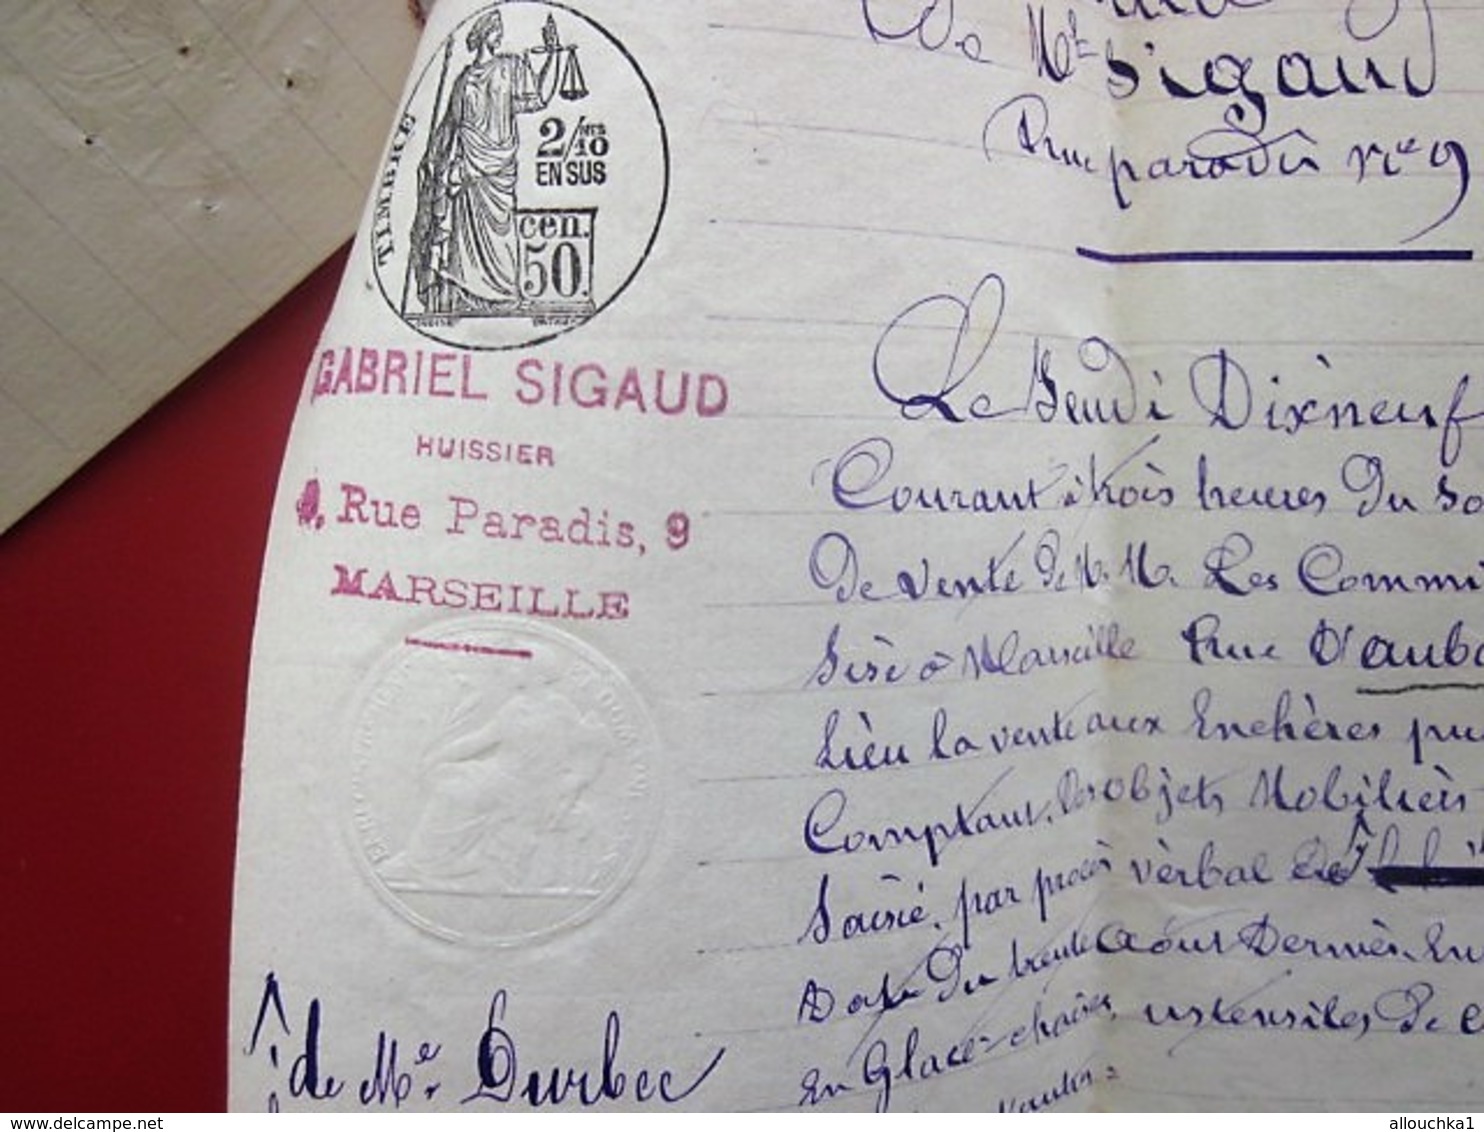 de Mt Sigaud
Rue paradis No 9
TIMBRE
2/10 MES
EN SUS
cen.
50.
GABRIEL SIGAUD
HUISSIER
9, Rue Paradis, 9
MARSEILLE
Le Jeudi Dixneuf
Courant à trois heures du so
de vente de M.M. Les Commi
Sise à Marseille Rue D'auba
Lieu la vente aux Enchères pu
Comptant, des objets Mobiliers
Saisie, par procès verbal de
Date du trente Août Dernier, En
En Glace, chaises, ustensiles De c
de Me. Durbec
www.delcampe.net
allouchka1